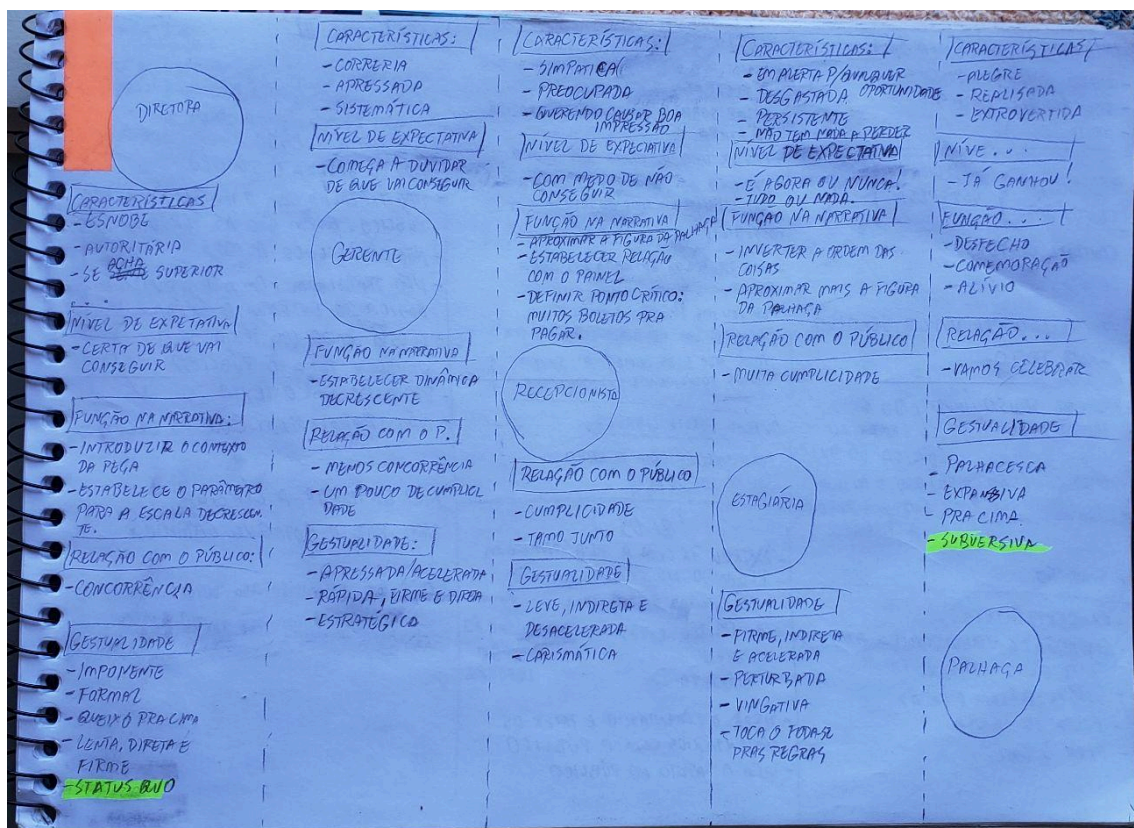 DIRETORA
CARACTERÍSTICAS
- ESNOBE
- AUTORITÁRIA
- SE ACHA SUPERIOR
...
NÍVEL DE EXPETATIVA
- CERTA DE QUE VAI
CONSEGUIR
FUNÇÃO NA NARRATIVA:
- INTRODUZIR O CONTEXTO
DA PEÇA
- ESTABELECE O PARÂMETRO
PARA A ESCALA DECRESCEN-
TE.
RELAÇÃO COM O PÚBLICO:
- CONCORRÊNCIA
GESTUALIDADE
- IMPONENTE
- FORMAL
- QUEIXO PRA CIMA
- LENTA, DIRETA E
FIRME
- STATUS QUO
CARACTERÍSTICAS:
- CORRERIA
- APRESSADA
- SISTEMÁTICA
NÍVEL DE EXPECTATIVA
- COMEÇA A DUVIDAR
DE QUE VAI CONSEGUIR
GERENTE
FUNÇÃO NA NARRATIVA
- ESTABELECER DINÂMICA
DECRESCENTE
RELAÇÃO COM O P.
- MENOS CONCORRÊNCIA
- UM POUCO DE CUMPLICI
DADE
GESTUALIDADE:
- APRESSADA/ACELERADA
- RÁPIDA, FIRME E DIRETA
- ESTRATÉGICA
CARACTERÍSTICAS:
- SIMPATICA
- PREOCUPADA
- QUERENDO CAUSAR BOA
IMPRESSÃO
NÍVEL DE EXPECIATIVA
- COM MEDO DE NÃO
CONSEGUIR
FUNÇÃO NA NARRATIVA
- APROXIMAR A FIGURA DA PALHAÇA
- ESTABELECER RELAÇÃO
COM O PAINEL
- DEFINIR PONTO CRÍTICO:
MUITOS BOLETOS PRA
PAGAR.
RECEPCIONISTA
RELAÇÃO COM O PÚBLICO
- CUMPLICIDADE
- TAMO JUNTO
GESTUALIDADE
- LEVE, INDIRETA E
DESACELERADA
- CARISMÁTICA
CARACTERÍSTICAS:
- EM ALERTA P/ QUALQUER
OPORTUNIDADE
- DESGASTADA
- PERSISTENTE
- NÃO TEM NADA A PERDER
NÍVEL DE EXPECTATIVA
- É AGORA OU NUNCA!
- TUDO OU NADA.
FUNÇÃO NA NARRATIVA
- INVERTER A ORDEM DAS
COISAS
- APROXIMAR MAIS A FIGURA
DA PALHAÇA
RELAÇÃO COM O PÚBLICO
- MUITA CUMPLICIDADE
ESTAGIÁRIA
GESTUALIDADE
- FIRME, INDIRETA
E ACELERADA
- PERTURBADA
- VINGATIVA
- TOCA O FODA-SE
PRAS REGRAS
CARACTERÍSTICAS
- ALEGRE
- REALISADA
- EXTROVERTIDA
NÍVE...
- JÁ GANHOU!
FUNÇÃO...
- DESFECHO
- COMEMORAÇÃO
- ALÍVIO
RELAÇÃO...
- VAMOS CELEBRAR
GESTUALIDADE
- PALHACESCA
- EXPANSIVA
- PRA CIMA
- SUBVERSIVA
PALHAÇA